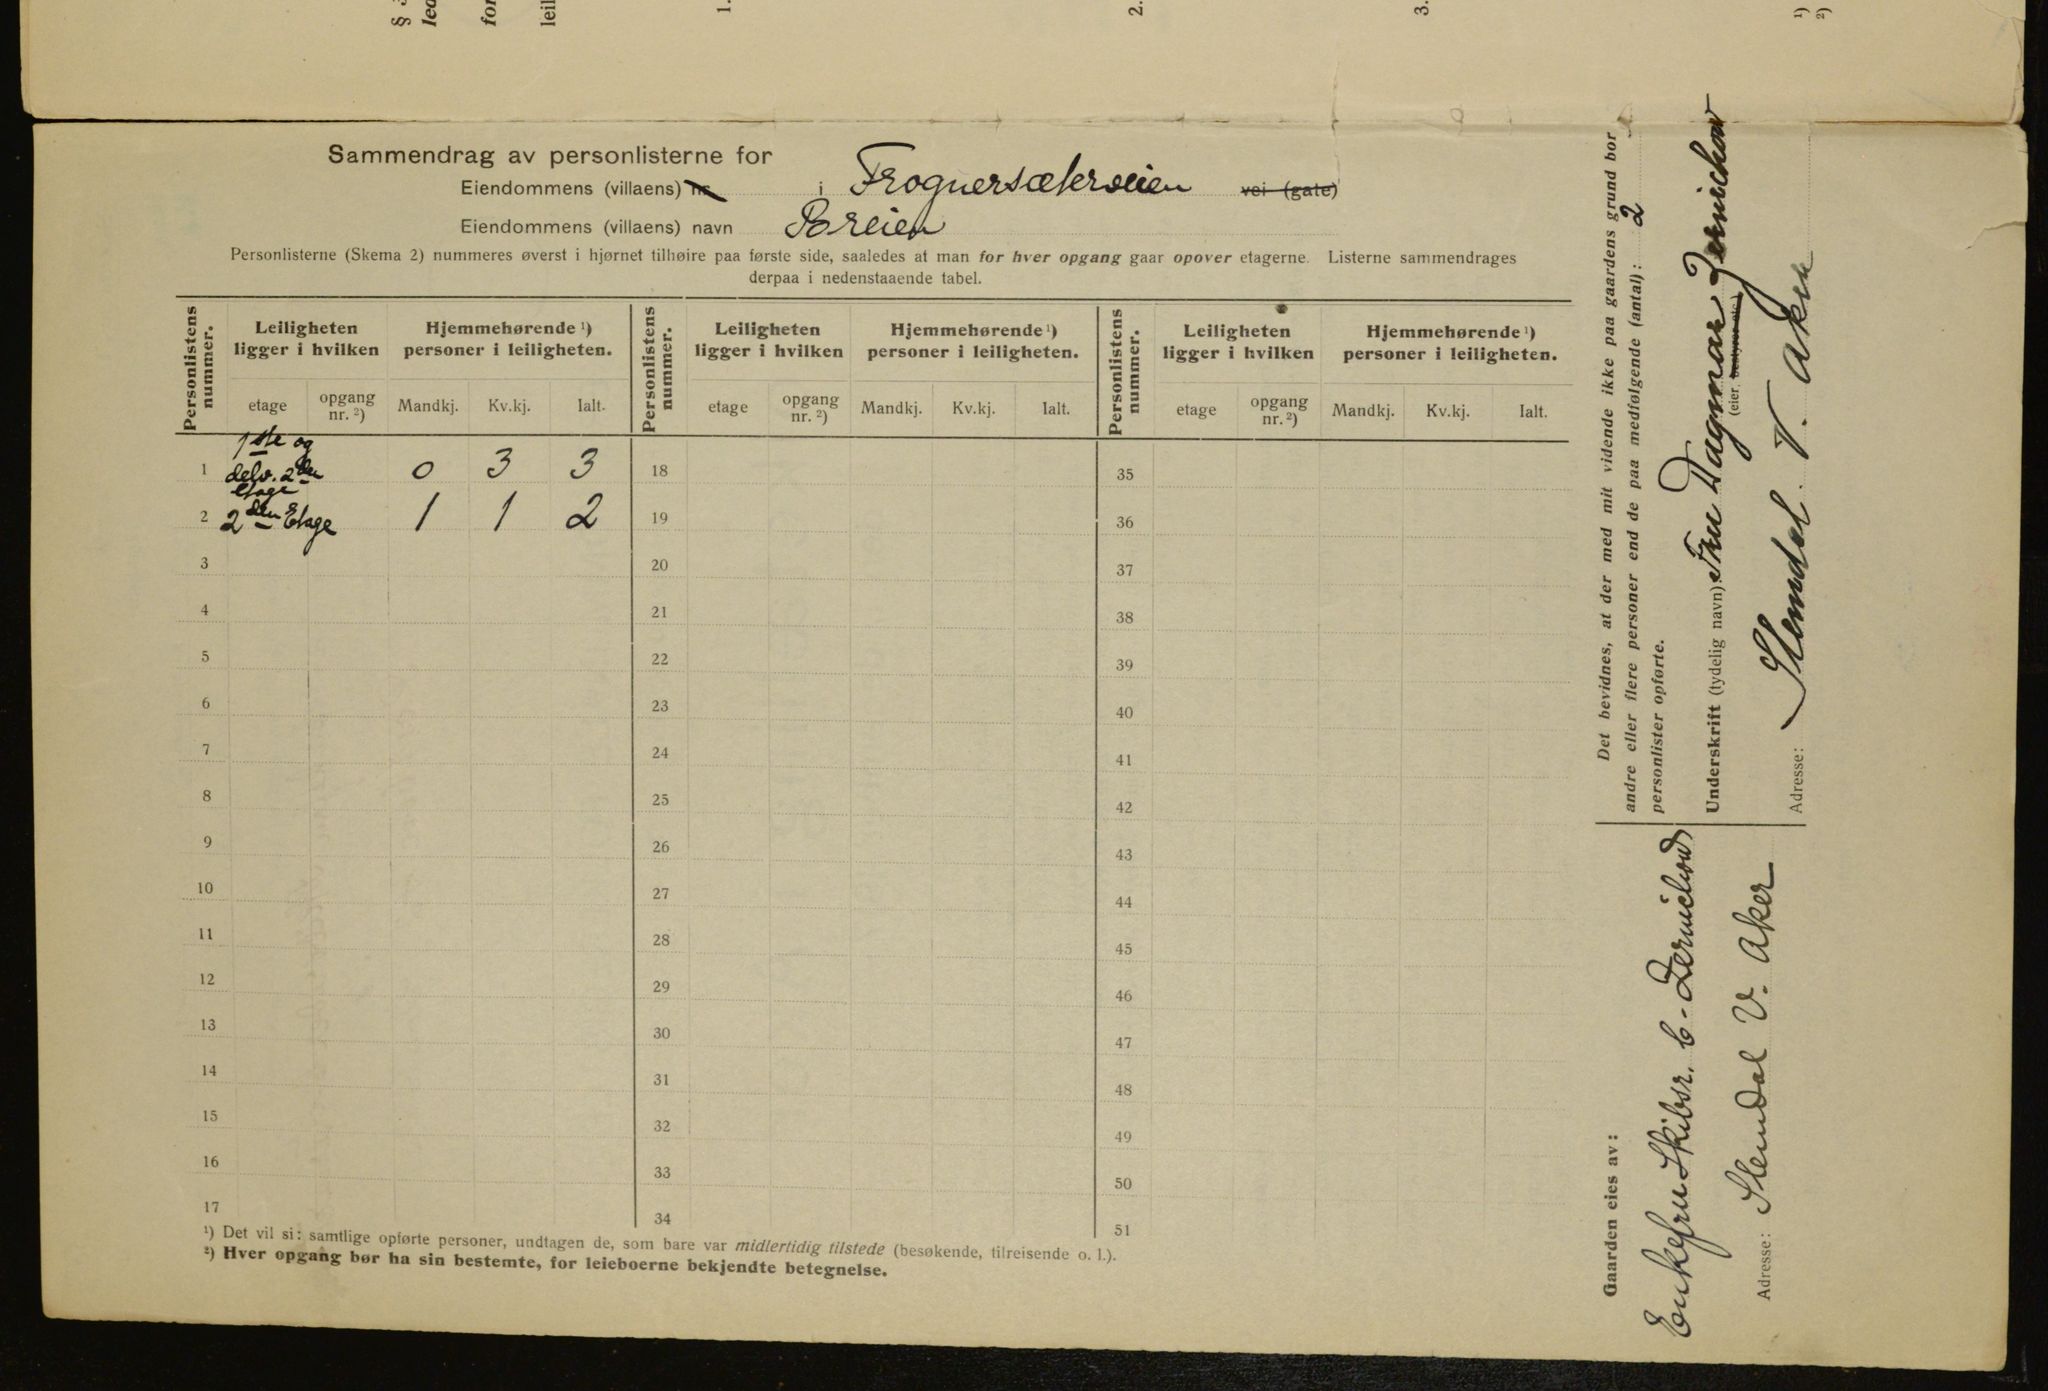 1.
2.
3.
1)
2)
Sammendrag av personlisterne for
Eiendommens (villaens) nr. i Frognersæterveien vei (gate)
Eiendommens (villaens) navn Breien
Personlisterne (Skema 2) nummeres øverst i hjørnet tilhøire paa første side, saaledes at man for hver opgang gaar opover etagerne. Listerne sammendrages
derpaa i nedenstaaende tabel.
Personlistens nummer. Leiligheten ligger i hvilken Hjemmehørende ¹) personer i leiligheten. Personlistens nummer. Leiligheten ligger i hvilken Hjemmehørende ¹) personer i leiligheten. Personlistens nummer. Leiligheten ligger i hvilken Hjemmehørende ¹) personer i leiligheten.
etage opgang nr. ²) Mandkj. Kv.kj. Ialt. etage opgang nr. ²) Mandkj. Kv.kj. Ialt. etage opgang nr. ²) Mandkj. Kv.kj. Ialt.
1 1ste og delv. 2den Etage 0 3 3 18 35
2 2den Etage 1 1 2 19 36
3 20 37
4 21 38
5 22 39
6 23 40
7 24 41
8 25 42
9 26 43
10 27 44
11 28 45
12 29 46
13 30 47
14 31 48
15 32 49
16 33 50
17 34 51
¹) Det vil si: samtlige opførte personer, undtagen de, som bare var midlertidig tilstede (besøkende, tilreisende o. l.).
²) Hver opgang bør ha sin bestemte, for leieboerne bekjendte betegnelse.
Det bevidnes, at der med mit vidende ikke paa gaardens grund bor
andre eller flere personer end de paa medfølgende (antal): 2
personlister opførte.
Underskrift (tydelig navn): Fru Dagmar Zernichow
(eier, bestyrer etc.)
Adresse: Slemdal V. Aker
Gaarden eies av:
Enkefru Skibsr. C. Zernichow
Adresse: Slemdal V. Aker